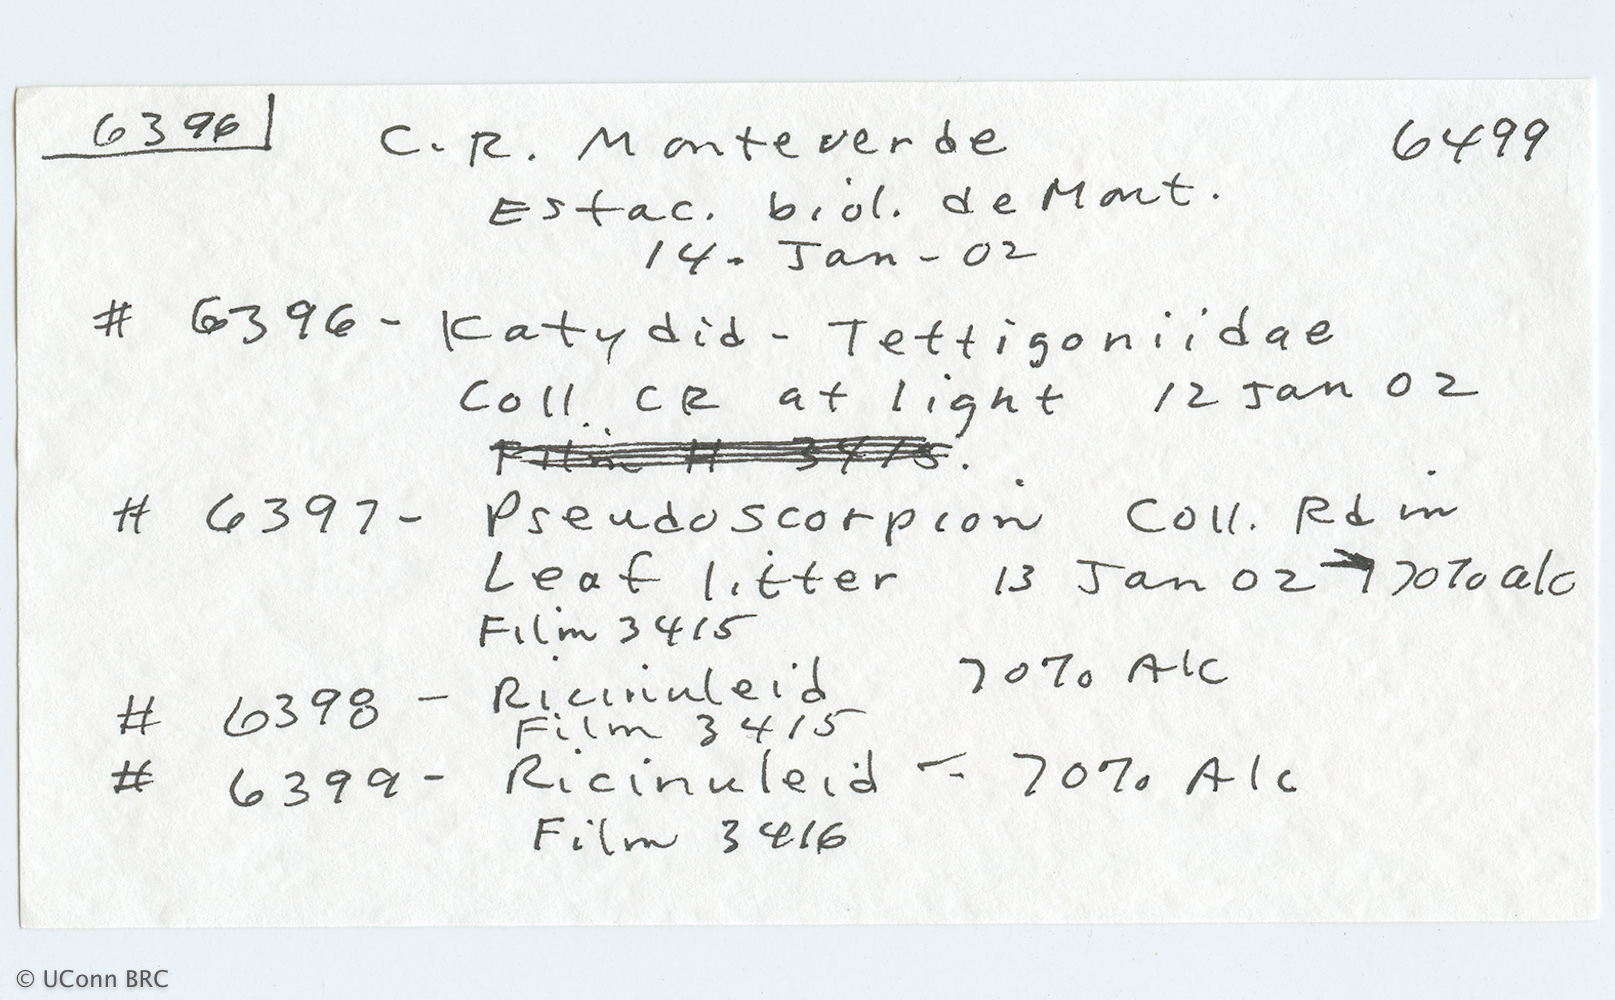 6396 C.R. Monteverde 6499
Estac. biol. de Mont.
14. Jan - 02
# 6396 - Katydid - Tettigoniidae
Coll. CR at light 12 Jan 02
Film # 3415.
# 6397 - Pseudoscorpion Coll. Rd in
Leaf litter 13 Jan 02 → 70% alc
Film 3415
# 6398 - Ricinuleid 70% Alc
Film 3415
# 6399 - Ricinuleid - 70% Alc
Film 3416
© UConn BRC